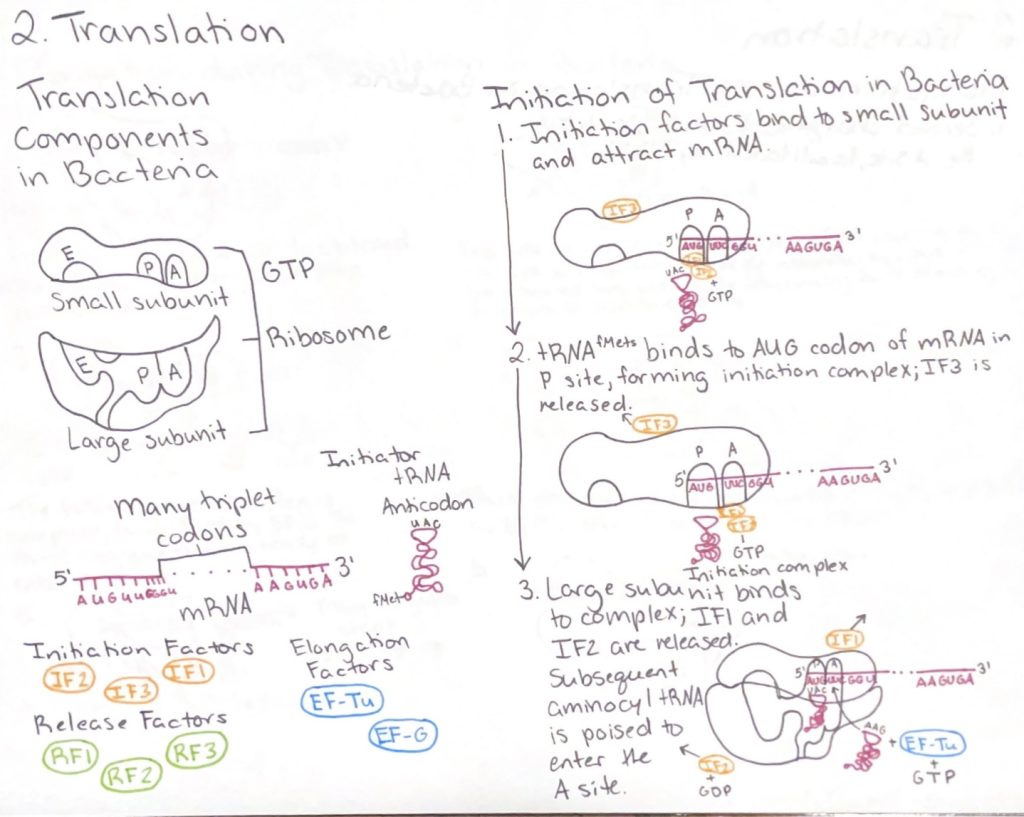 2. Translation
Translation
Components
in Bacteria
E
P A
Small subunit
E
P A
Large subunit
GTP
Ribosome
Many triplet
codons
5' 3'
AUGUUCGGU AAGUGA
mRNA
Initiator
tRNA
Anticodon
UAC
fMet
Initiation Factors
IF2 IF3 IF1
Elongation
Factors
EF-Tu
EF-G
Release Factors
RF1 RF2 RF3
Initiation of Translation in Bacteria
1. Initiation factors bind to small subunit
and attract mRNA.
IF3
P A
5' AUG UUC GGU ... AAGUGA 3'
UAC
+
GTP
2. tRNA fMets binds to AUG codon of mRNA in
P site, forming initiation complex; IF3 is
released.
IF3
P A
5' AUG UUC GGU .... AAGUGA 3'
GTP
Initiation complex
3. Large subunit binds
to complex; IF1 and
IF2 are released.
Subsequent
aminocyl tRNA
is poised to
enter the
A site.
IF1
P A
5' AUGUUCGGU ... AAGUGA 3'
UAC
AAG
+ EF-Tu
+
GTP
IF2
+
GDP